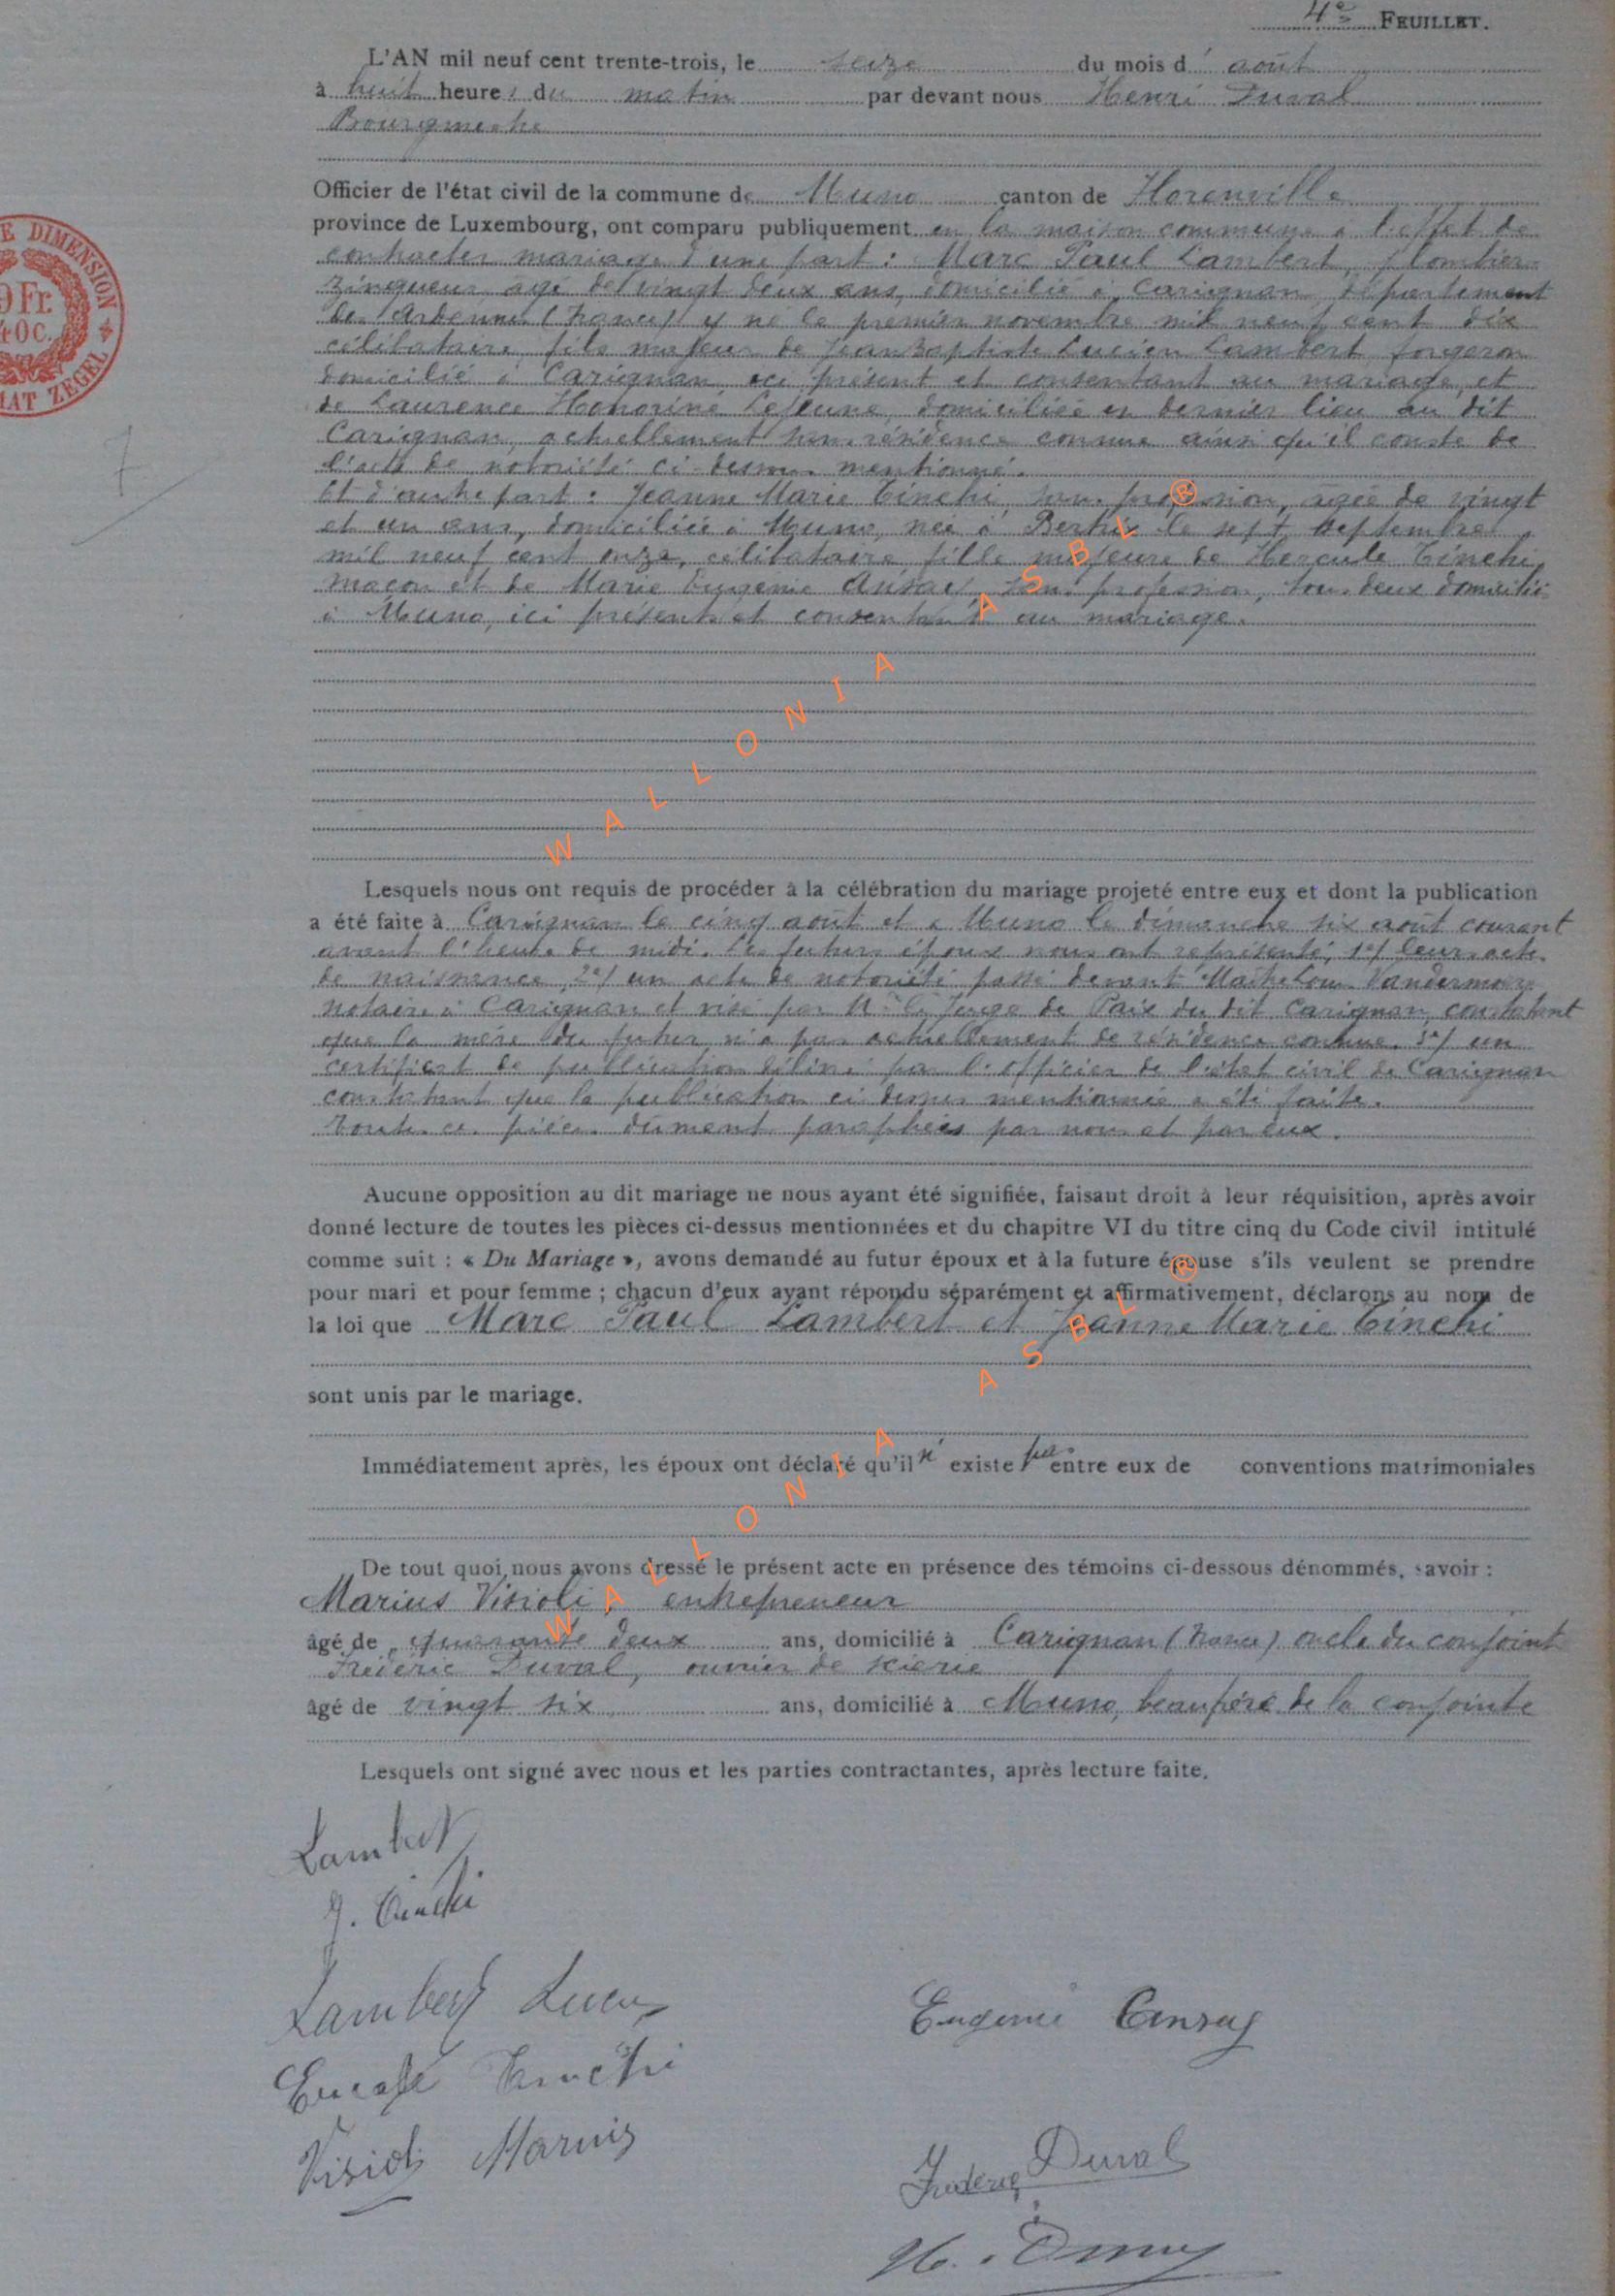 4e FEUILLET.
L'AN mil neuf cent trente-trois, le seize du mois d' août
à huit heures du matin par devant nous Henri Duval
Bourgmestre
Officier de l'état civil de la commune de Muno canton de Florenville
province de Luxembourg, ont comparu publiquement en la maison commune à l'effet de
contracter mariage d'une part : Marc Paul Lambert, plombier
zingueur, âgé de vingt deux ans, domicilié à Carignan, département
des Ardennes (France) y né le premier novembre mil neuf cent dix
célibataire, fils majeur de Jean Baptiste Lucien Lambert, forgeron
domicilié à Carignan, ici présent et consentant au mariage, et
de Laurence Honorine Lejeune, domiciliée en dernier lieu au dit
Carignan, actuellement sans résidence connue ainsi qu'il conste de
l'acte de notoriété ci-dessous mentionné.
Et d'autre part : Jeanne Marie Cinchi, sans profession, âgée de vingt
et un ans, domiciliée à Muno, née à le sept septembre
mil neuf cent onze, célibataire, fille majeure de Hercule Cinchi
maçon et de Marie Eugénie Ansay, sans profession, tous deux domiciliés
à Muno, ici présents et consentants au mariage.
Lesquels nous ont requis de procéder à la célébration du mariage projeté entre eux et dont la publication
a été faite à Carignan le cinq août et à Muno le dimanche six août courant
avant l'heure de midi. Les futurs époux nous ont représenté, 1°/ leurs actes
de naissance, 2°/ un acte de notoriété passé devant Maître Louis
notaire à Carignan et visé par Mr le Juge de Paix du dit Carignan, constatant
que la mère du futur n'a pas actuellement de résidence connue. 3°/ un
certificat de publication délivré par l'officier de l'état civil de Carignan
constatant que la publication ci dessus mentionnée a été faite.
Toutes ces pièces dûment paraphées par nous et par eux.
Aucune opposition au dit mariage ne nous ayant été signifiée, faisaut droit à leur réquisition, après avoir
donné lecture de toutes les pièces ci-dessus mentionnées et du chapitre VI du titre cinq du Code civil intitulé
comme suit : « Du Mariage », avons demandé au futur époux et à la future épouse s'ils veulent se prendre
pour mari et pour femme ; chacun d'eux ayant répondu séparément et affirmativement, déclarons au nom de
la loi que Marc Paul Lambert et Jeanne Marie Cinchi
sont unis par le mariage.
Immédiatement après, les époux ont déclaré qu'il n' existe pas entre eux de conventions matrimoniales
De tout quoi nous avons dressé le présent acte en présence des témoins ci-dessous dénommés, savoir :
Marius Visioli, entrepreneur
âgé de quarante deux ans, domicilié à Carignan (France) oncle du conjoint
Fréderic Duval, ouvrier de scierie
âgé de vingt six ans, domicilié à Muno, beau père de la conjointe
Lesquels ont signé avec nous et les parties contractantes, après lecture faite.
Lambert
J. Cinchi
Lambert Lucien
Eugenie Ansay
Cinchi
Visioli Marius
Frederic Duval
H. Duval
E DIMENSION
Fr.
40c.
AT ZEGEL
7
WALLONIA ASBL ®
WALLONIA ASBL ®